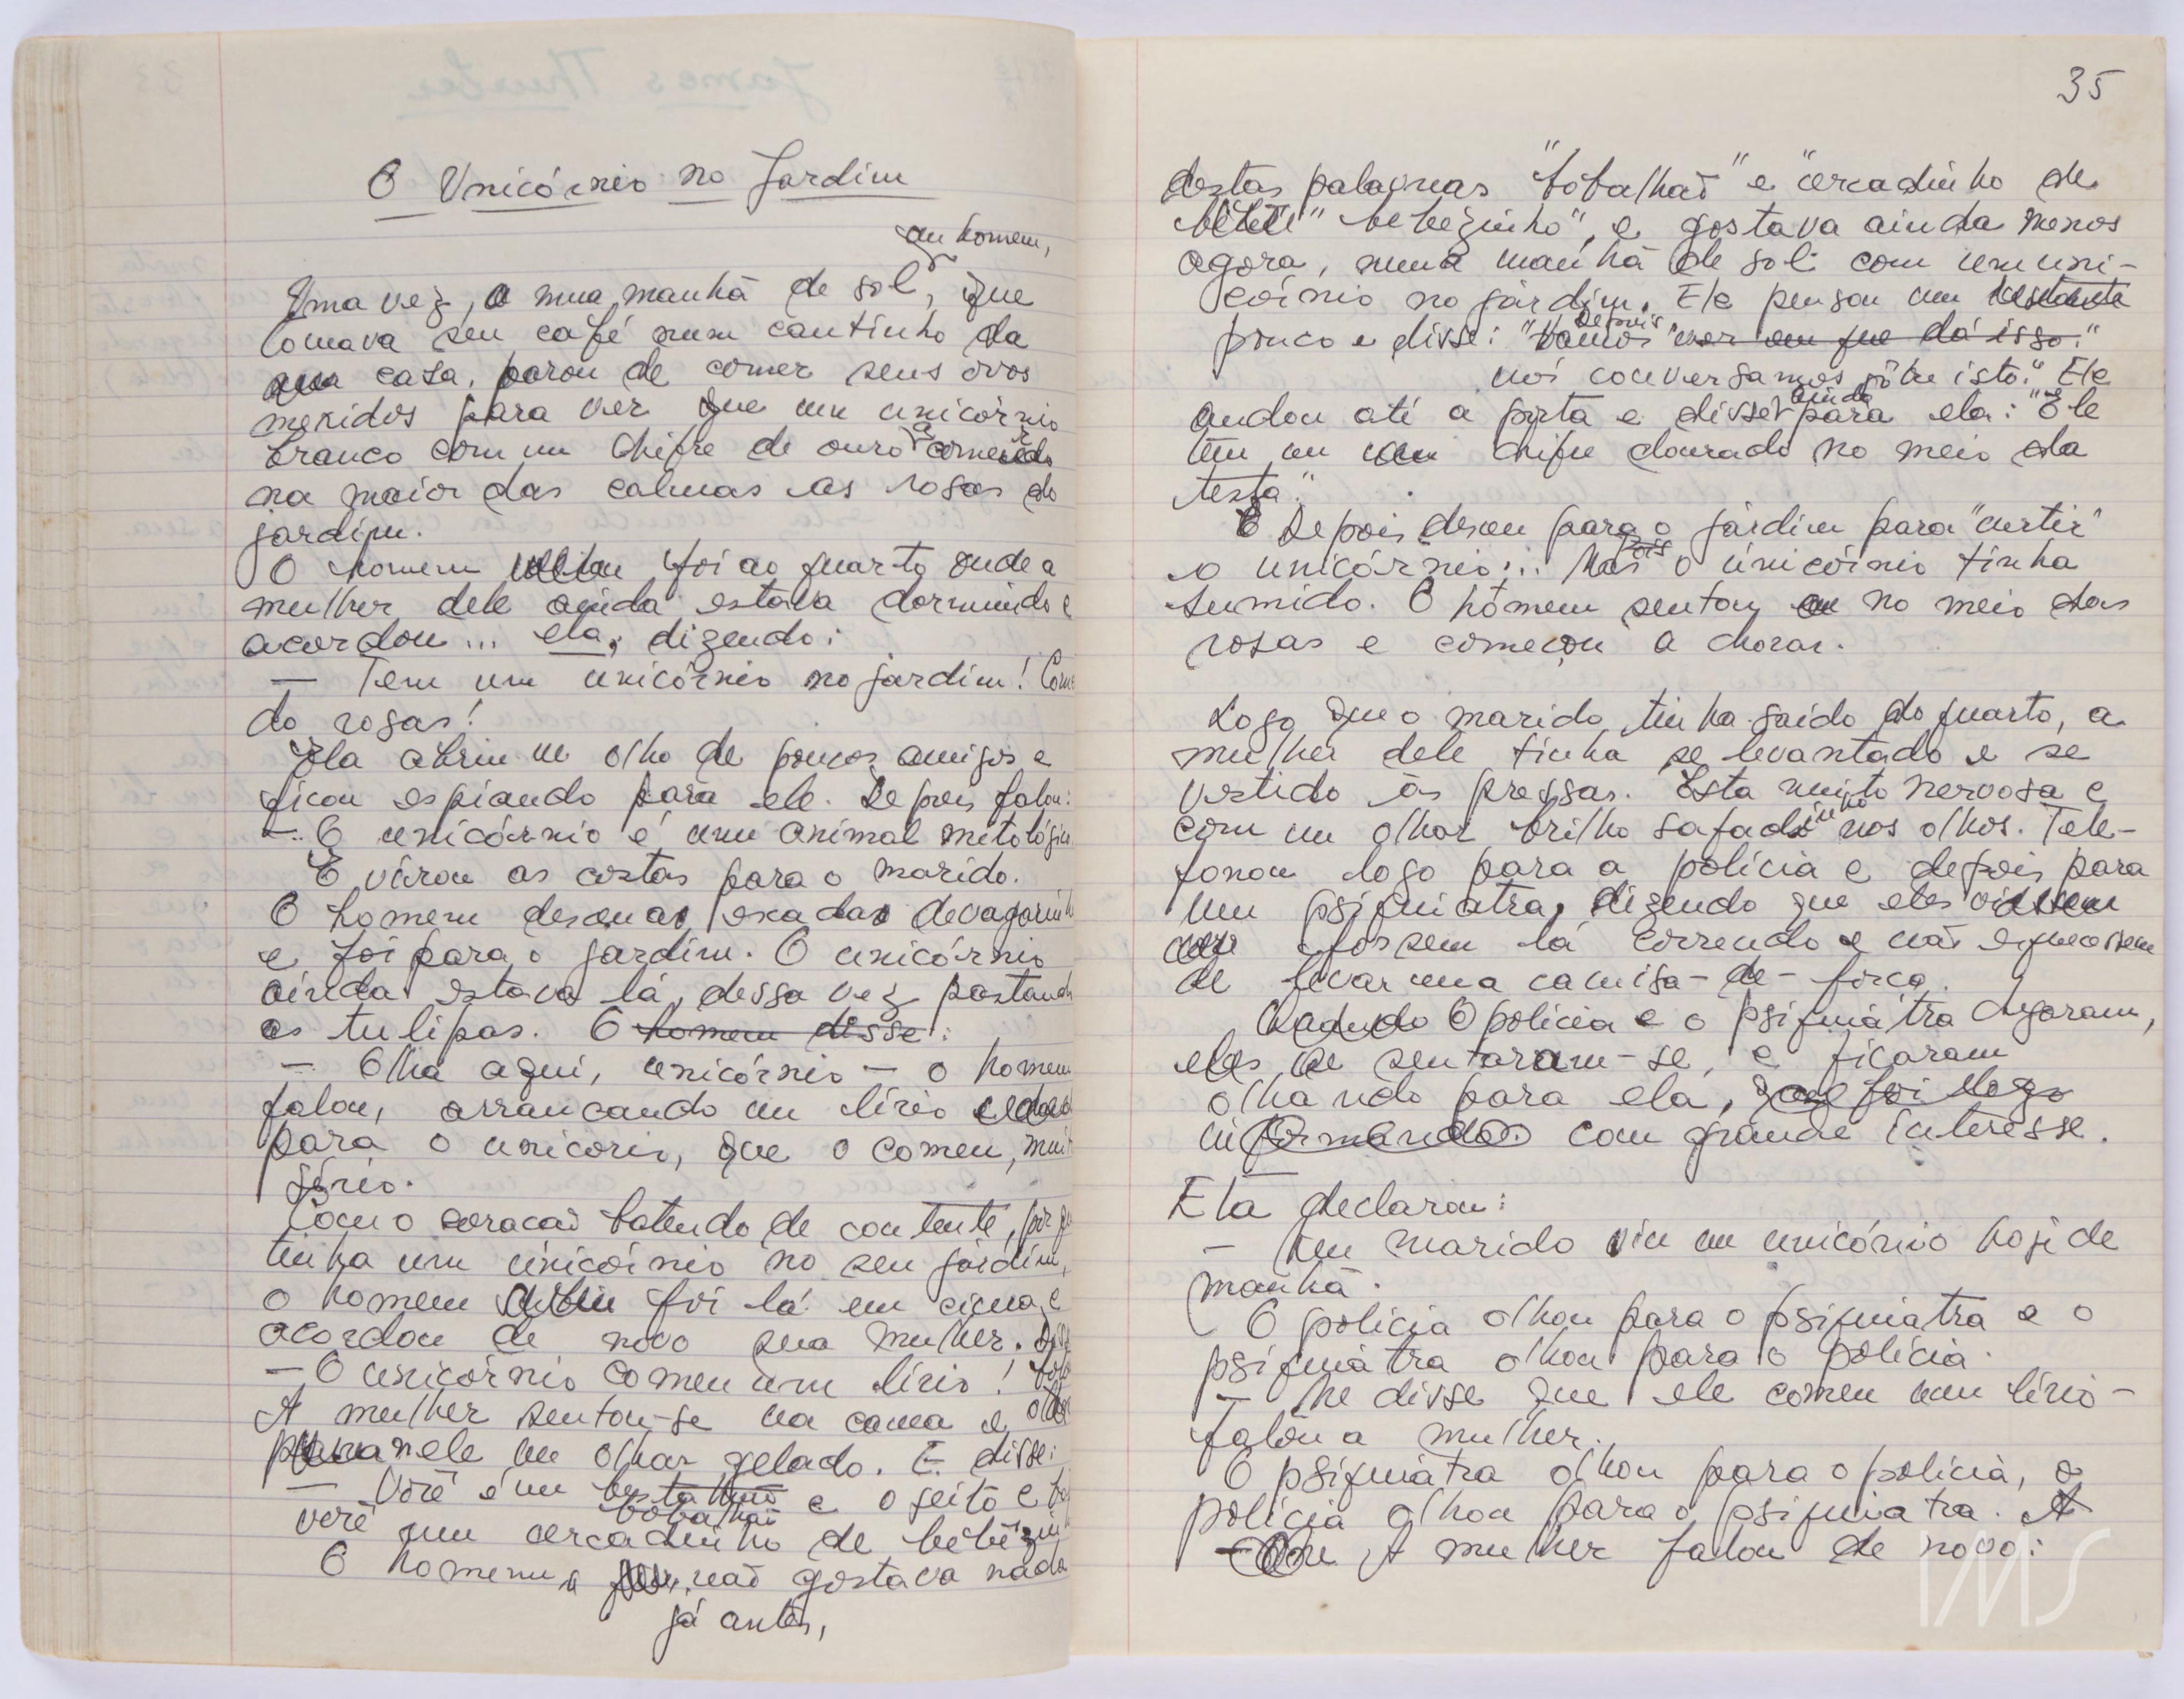 O Unicórnio no Jardim
um homem,
Uma vez, numa manhã de sol, que
tomava seu café num cantinho da
casa, parou de comer seus ovos
mexidos para ver que um unicórnio
branco com um chifre de ouro a comer
na maior das calmas as rosas do
jardim.
O homem foi ao quarto onde a
mulher dele ainda estava dormindo e
acordou... ela, dizendo:
— Tem um unicórnio no jardim! Comen
do rosas!
Ela abriu um olho de poucos amigos e
ficou espiando para ele. Depois falou:
— O unicórnio é um animal mitológico
E virou as costas para o marido.
O homem desceu as escadas devagarinh
e foi para o jardim. O unicórnio
ainda estava lá, dessa vez pastando
as tulipas. O homem disse:
— Olha aqui, unicórnio — o homem
falou, arrancando um lírio
para o unicorio, que o comeu, muit
sério.
Com o coração batendo de contente, por qu
tinha um unicórnio no seu jardim,
o homem foi lá em cima e
acordou de novo sua mulher.
— O unicórnio comeu um lírio!
A mulher sentou-se na cama e
nele um olhar gelado. E disse:
— Você é um bestalhão e o jeito é
bobalhão
você num cercadinho de bebêzin
O homem não gostava nada
já antes,
35
destas palavras "bobalhão" e "cercadinho de
bebezinho", e gostava ainda menos
agora, numa manhã de sol com um uni-
córnio no jardim. Ele pensou um
pouco e disse: "Vamos ver em que dá isso."
Depois
nós conversamos sôbre isto." Ele
ainda
andou até a porta e disse para ela: "Ele
tem um chifre dourado no meio da
testa."
Depois desceu para o jardim para "curtir"
pois
o unicórnio... Mas o unicórnio tinha
sumido. O homem sentou no meio das
rosas e começou a chorar.
Logo que o marido tinha saído do quarto, a
mulher dele tinha se levantado e se
vestido às pressas. Esta muito nervosa e
com um olhar brilho safadinho nos olhos. Tele-
fonou logo para a polícia e depois para
um psiquiatra, dizendo que eles
fossem lá correndo e não esquecessem
de levar uma camisa-de-fôrça.
Quando O polícia e o psiquiátra chegaram,
eles se sentaram-se, e ficaram
olhando para ela, que foi logo
informando com grande interesse.
Ela declarou:
— Meu marido viu um unicórnio hoje de
manhã.
O polícia olhou para o psiquiatra e o
psiquiatra olhou para o polícia.
— Me disse que ele comeu um lírio —
falou a mulher.
O psiquiatra olhou para o polícia, o
polícia olhou para o psiquiatra. A
A mulher falou de novo:
IMS